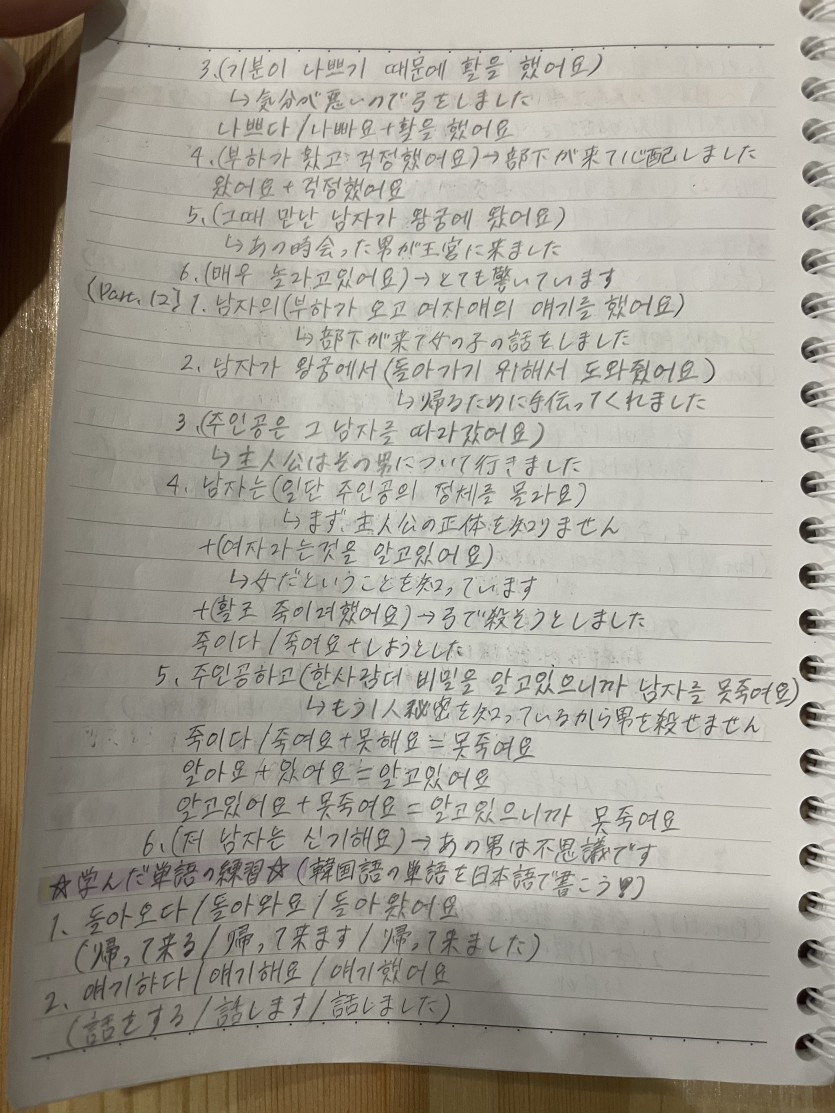 3.(기분이 나쁘기 때문에 활을 했어요)
↳気分が悪いので弓をしました
나쁘다/나빠요+활을 했어요
4.(부하가 왔고 걱정했어요)→部下が来て心配しました
왔어요+걱정했어요
5.(그때 만난 남자가 왕궁에 왔어요)
↳あの時会った男が王宮に来ました
6.(매우 놀라고있어요)→とても驚いています
(Part.12) 1. 남자의(부하가 오고 여자애의 얘기를 했어요)
↳部下が来て女の子の話をしました
2. 남자가 왕궁에서(돌아가기 위해서 도와줬어요)
↳帰るために手伝ってくれました
3.(주인공은 그 남자를 따라갔어요)
↳主人公はその男について行きました
4. 남자는(일단 주인공의 정체를 몰라요)
↳まず、主人公の正体を知りません
+(여자라는것을 알고있어요)
↳女だということを知っています
+(활로 죽이려했어요)→弓で殺そうとしました
죽이다/죽여요+しようとした
5. 주인공하고(한사람더 비밀을 알고있으니까 남자를 못죽여요)
↳もう1人秘密を知っているから男を殺せません
죽이다/죽여요+못해요=못죽여요
알아요+있어요=알고있어요
알고있어요+못죽여요=알고있으니까 못죽여요
6.(저 남자는 신기해요)→あの男は不思議です
☆学んだ単語の練習☆(韓国語の単語を日本語で書こう!)
1. 돌아오다/돌아와요/돌아왔어요
(帰って来る/帰って来ます/帰って来ました)
2. 얘기하다/얘기해요/얘기했어요
(話をする/話します/話しました)